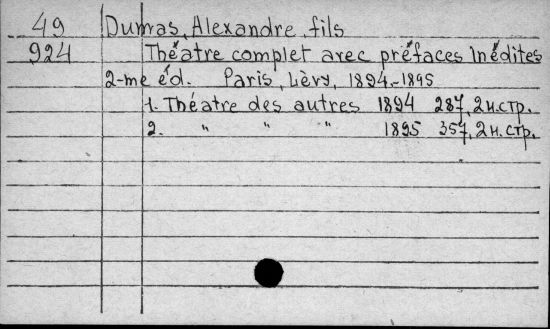 49 Dumas, Alexandre, fils
924 Théatre complet avec préfaces Inédites
2-me éd. Paris, Lèvy, 1894-1895
1. Théatre des autres 1894 287, 2 н.стр.
2. " " " 1895 357, 2 н.стр.